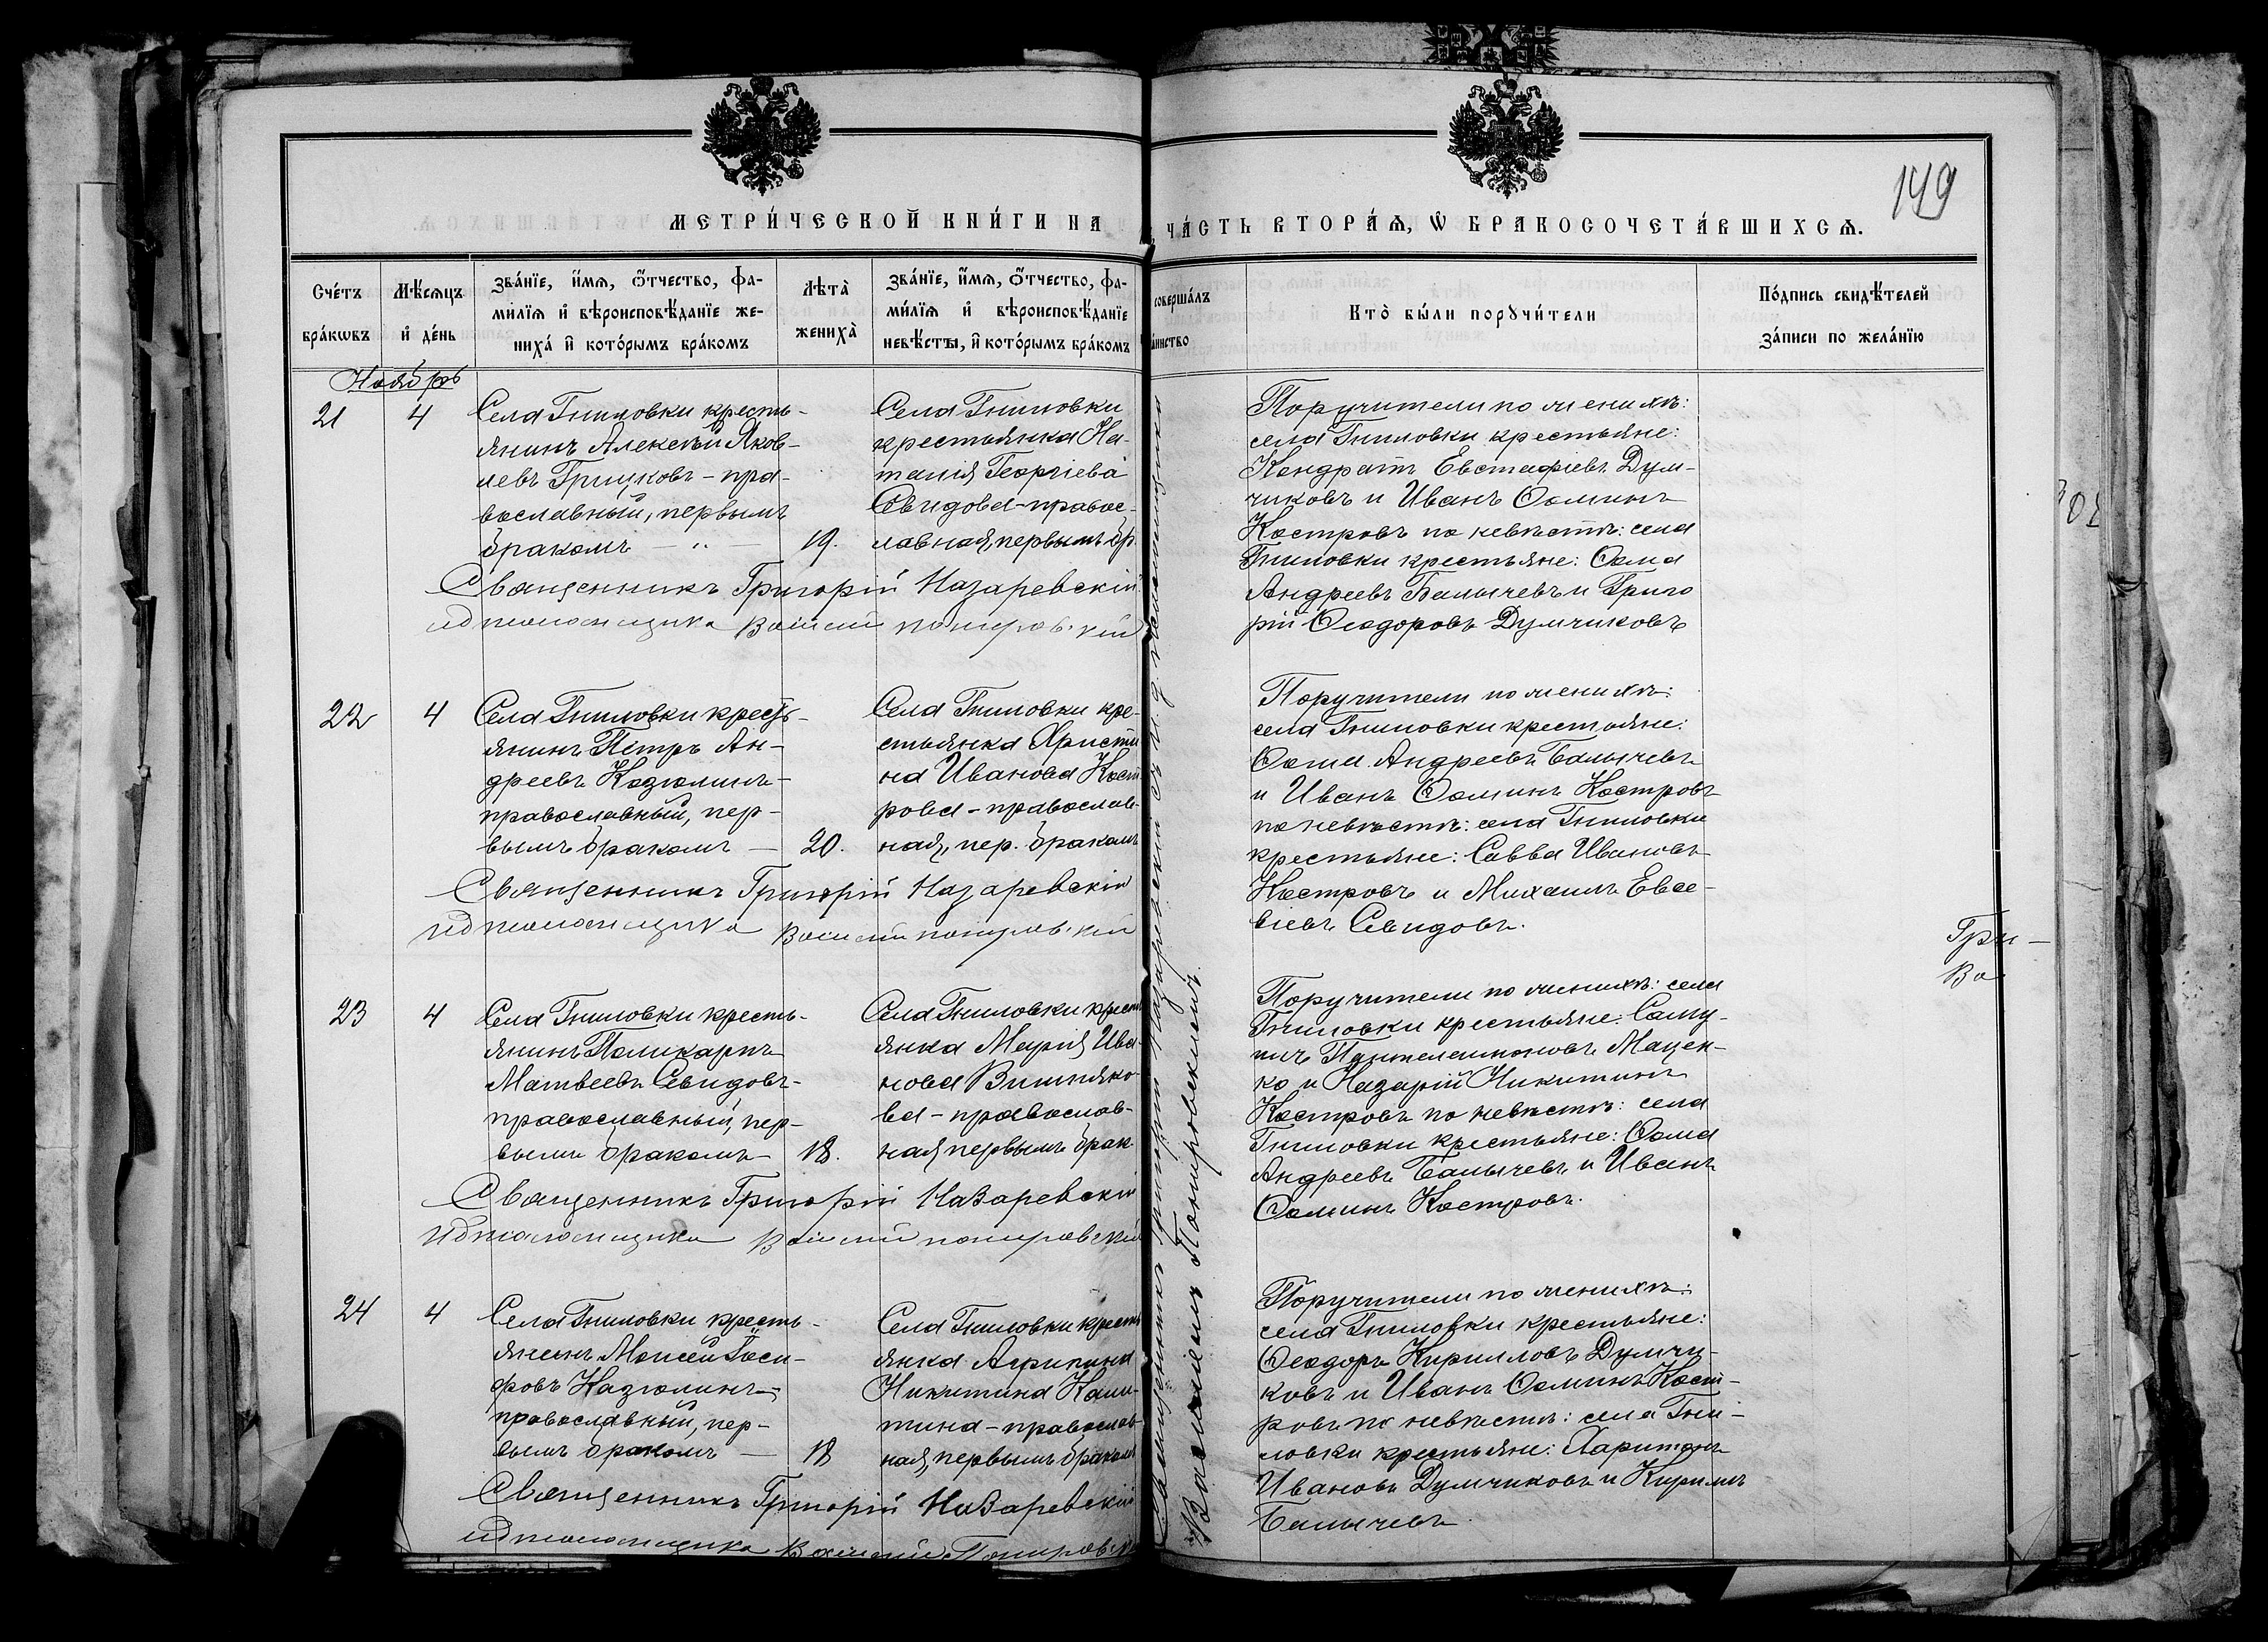 МЕТРИ́ЧЕСКОЙ КНИ́ГИ НА
ЧА́СТЬ ВТОРА́Ѧ, Ѡ҆ БРАКОСОЧЕТА́ВШИХСѦ.
149
Сче́тъ бра́кѡвъ
Мѣ́сѧцъ и҆ де́нь
Зва́нїе, и҆́мѧ, ѻ҆́тчество, фа-
ми́лїѧ и҆ вѣроисповѣ́данїе же-
ниха́ и҆ кото́рымъ бра́комъ
Лѣта̀ жениха̀
Зва́нїе, и҆́мѧ, ѻ҆́тчество, фа-
ми́лїѧ и҆ вѣроисповѣ́данїе
невѣ́сты, и҆ кото́рымъ бра́комъ
соверша́лъ
та́инство
Кто̀ бы́ли порꙋчи́тели
По́дпись свидѣ́телей
за́писи по жела́нїю
Ноябрь
21
4
Села Гниловки кресть-
янинъ Алексѣй Яков-
левъ Грицковъ - пра-
вославный, первымъ
бракомъ — „ —
19.
Села Гниловки
крестьянка На-
талія Георгіева
Свидова - правос-
лавная, первымъ бр.
Поручители по женихѣ:
села Гниловки крестьяне:
Кондратъ Евстафіевъ Дум-
чиковъ и Иванъ Ѳоминъ
Костровъ по невѣстѣ: села
Гниловки крестьяне: Ѳома
Андреевъ Балычевъ и Григо
рій Ѳеодоровъ Думчиковъ
Священникъ Григорій Назаревскій
ид псаломщика Василій
22
4
Села Гниловки кресть-
янинъ Петръ Ан-
дреевъ Казюлинъ -
православный, пер-
вымъ бракомъ —
20.
Села Гниловки кре-
стьянка Христи
на Иванова Кост
рова - православ-
ная, пер. бракомъ
Поручители по женихѣ:
села Гниловки крестьяне:
Ѳома Андреевъ Балычевъ
и Иванъ Ѳоминъ Костровъ
по невѣстѣ: села Гниловки
крестьяне: Савва Ивановъ
Костровъ и Михаилъ Евсе-
віевъ Свидовъ.
Священникъ Григорій Назаревскій
ид псаломщика Василій
Гри —
Ва
23
4
Села Гниловки кресть-
янинъ Поликарпъ
Матвеевъ Свидовъ -
православный, пер-
вымъ бракомъ
18.
Села Гниловки кресть
янка Марія Ива-
нова Вишняко-
ва - православ-
ная, первымъ брак
Поручители по женихѣ: села
Гниловки крестьяне: Саму-
илъ Пантелеимоновъ Мацен-
ко и Назарій Никитинъ
Костровъ по невѣстѣ: села
Гниловки крестьяне: Ѳома
Андреевъ Балычевъ и Иванъ
Ѳоминъ Костровъ.
Священникъ Григорій Назаревскій
ид псаломщика Василій
24
4
Села Гниловки кресть-
янинъ Моисей Іоси-
фовъ Казюлинъ -
православный, пер-
вымъ бракомъ —
18
Села Гниловки кресть
янка Агрипина
Никитина
тина - православ-
ная, первымъ бракомъ
Поручители по женихѣ:
села Гниловки крестьяне:
Ѳеодоръ Кирилловъ Думчи-
ковъ и Иванъ Ѳоминъ Кост-
ровъ по невѣстѣ: села Гни-
ловки крестьяне: Харитонъ
Ивановъ Думчиковъ и Кириллъ
Балычевъ.
Священникъ Григорій Назаревскій
ид псаломщика Василій
Священникъ Григорій Назаревскій съ и. д. псаломщика
Василіемъ